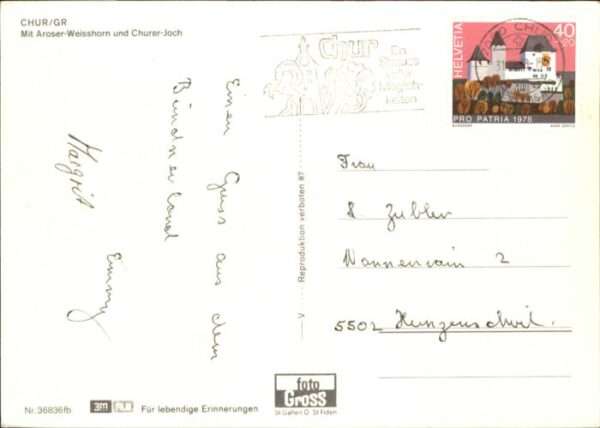 CHUR/GR
Mit Aroser-Weisshorn und Churer-Joch
Chur
HELVETIA
40
+20
PRO PATRIA 1978
BURGDORF
Einen Gruss aus dem
Bündnerland
Margrit
Emmy
V
Reproduktion verboten 87
Frau
Zubler
Wannenrain 2
5502 Hunzenschwil.
Nr. 36836fb
Für lebendige Erinnerungen
foto
Gross
St. Gallen O St. Fiden